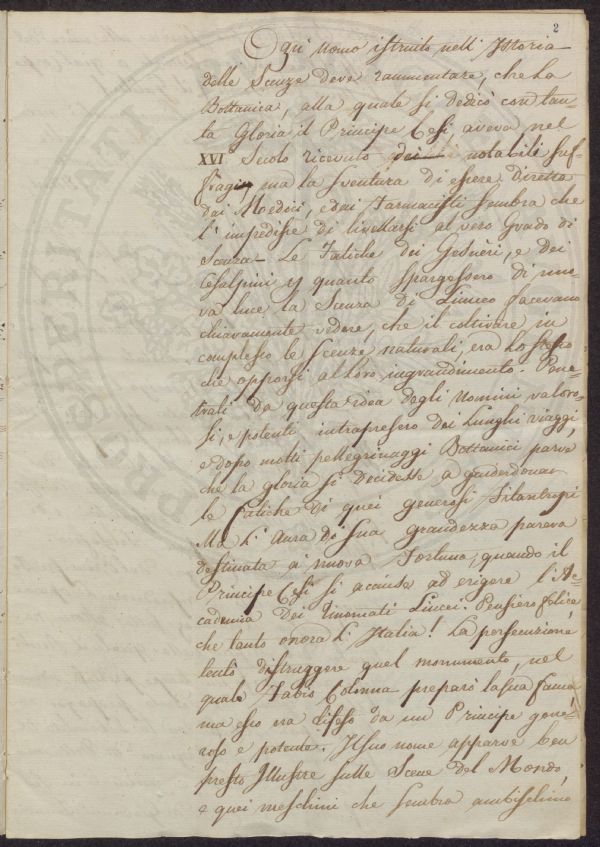 2
Ogni Uomo istruito nell' Istoria
delle Scenze deve rammentare, che la
Bottanica, alla quale si dedicò con tan-
ta Gloria il Principe Cesi, aveva nel
XVI Secolo ricevuto notabili suf-
fragi, ma la sventura di essere diretta
dai Medici, e dai Farmacisti sembra che
l' impedisse di livellarsi al vero Grado di
Scenza. Le Fatiche dei Gesneri, e dei
Cesalpini quanto spargessero di nuo-
va luce la Scenza di Linneo facevano
chiaramente vedere, che il coltivare in
complesso le scenze naturali, era lo stesso
che opporsi al loro ingrandimento. Pene-
trati da questa idea degli Uomini valoro-
si, e potenti intrapresero dei lunghi viaggi,
e dopo molti pellegrinaggi Bottanici parve
che la gloria si decidesse a guiderdonar
le Fatiche di quei generosi Filantropi
Ma l' aura di sua grandezza pareva
destinata a nuova Fortuna, quando il
Principe Cesi si accinse ad erigere l' Ac-
cademia dei Rinomati Lincei. Pensiero felice
che tanto onora l' Italia! La persecuzione
tentò distruggere quel monumento, nel
quale Fabio Colonna preparò la sua fama
ma esso era difeso da un Principe gene-
roso e potente. Il suo nome apparve ben
presto Illustre sulle Scene del Mondo,
e quei meschini che sembra ambissero